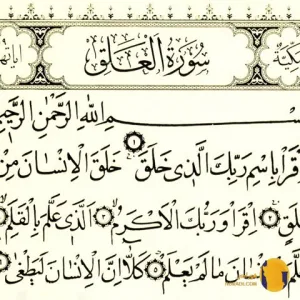 مكية سورة العلق آياتها
بسم الله الرحمن الرحيم
قرأ باسم ربك الذي خلق ١ خلق الإنسان من
علق ٢ اقرأ وربك الأكرم ٣ الذي علم بالقلم ٤
علم الإنسان ما لم يعلم ٥ كلا إن الإنسان ليطغى